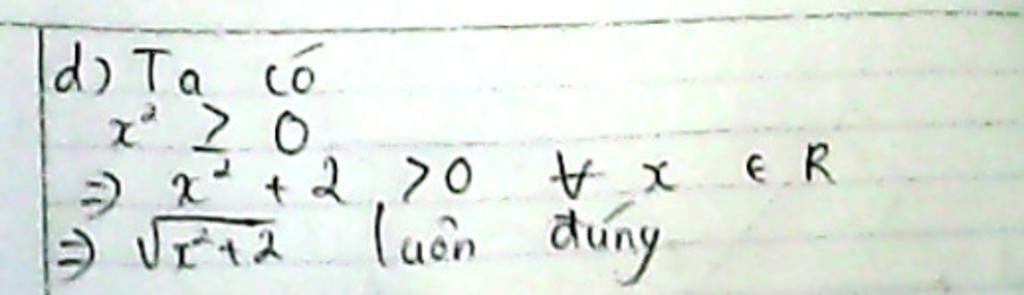 d) Ta có
x² ≥ 0
=> x² + 2 > 0 ∀ x ∈ R
=> √x²+2 luôn đúng